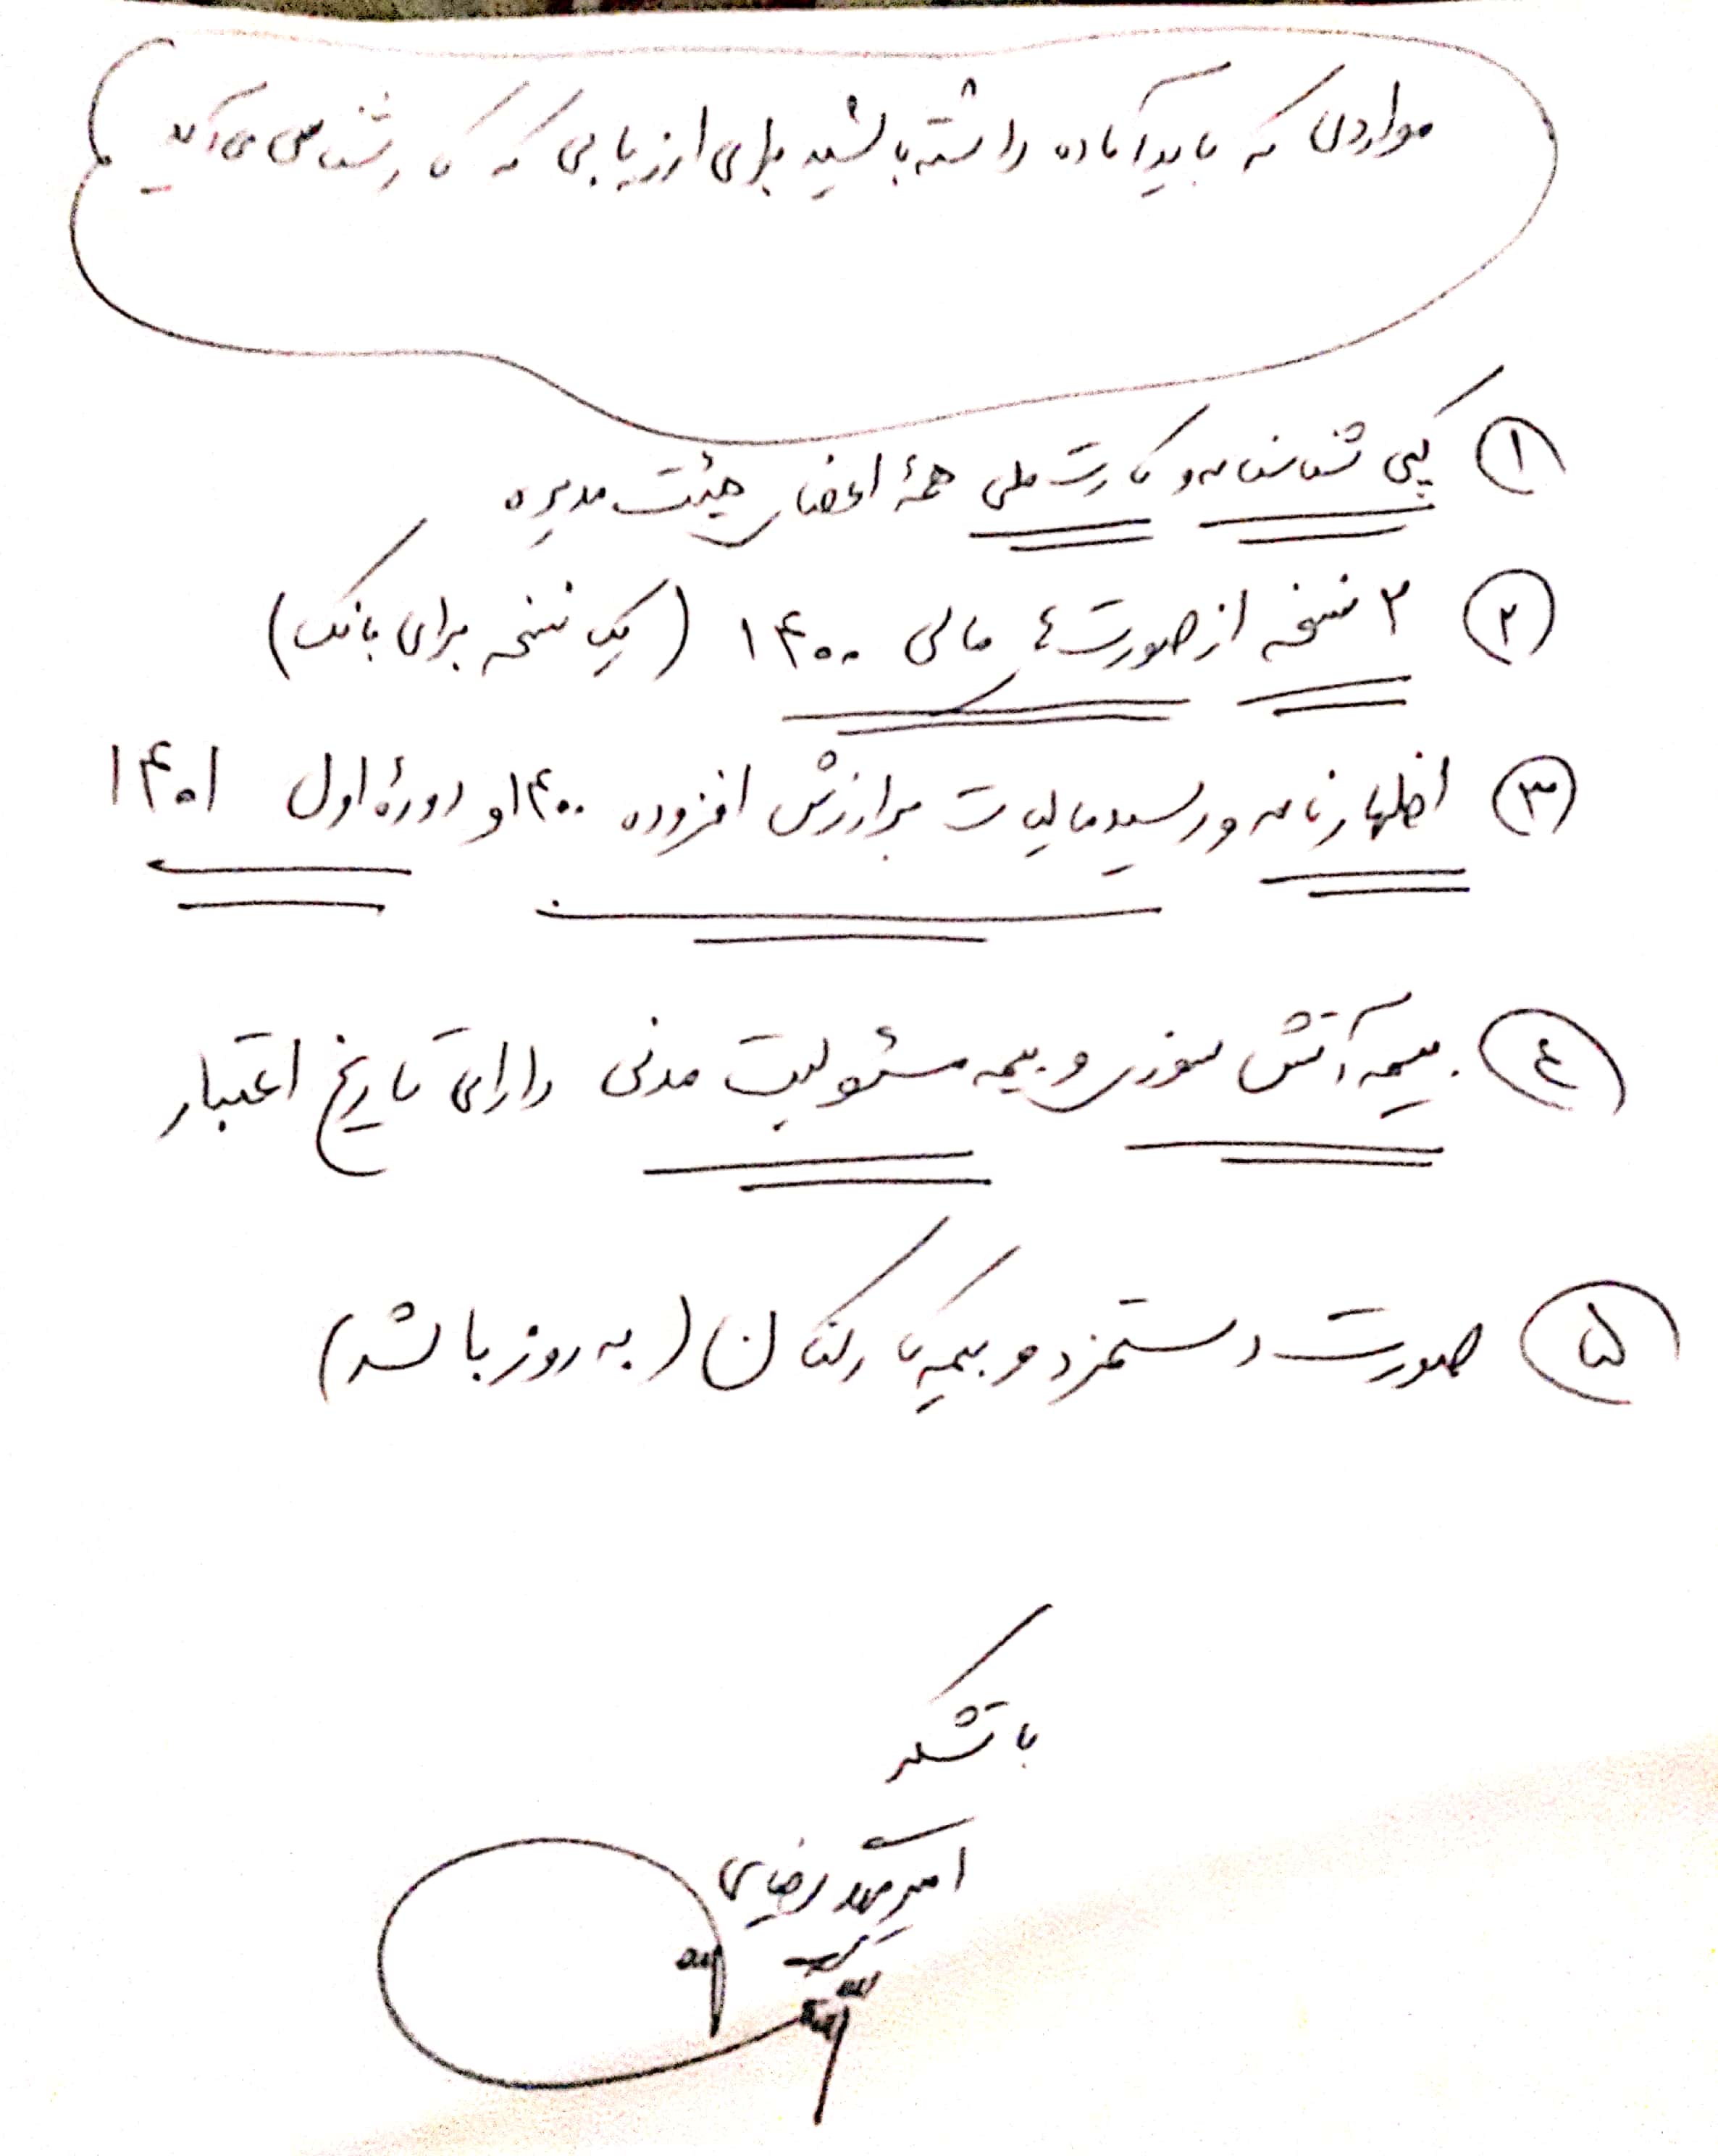 مواردی که باید آماده داشته باشید برای ارزیابی که کارشناس می‌آید
۱ کپی شناسنامه و کارت ملی همهٔ اعضای هیئت مدیره
۲ ۲ نسخه از صورت‌های مالی ۱۴۰۰ (یک نسخه برای بانک)
۳ اظهارنامه و رسید مالیات بر ارزش افزوده ۱۴۰۰ و دورهٔ اول ۱۴۰۱
۴ بیمه آتش سوزی و بیمه مسئولیت مدنی دارای تاریخ اعتبار
۵ صورت دستمزد و بیمه کارکنان (به روز باشد)
با تشکر
امیرمحمد رضایی